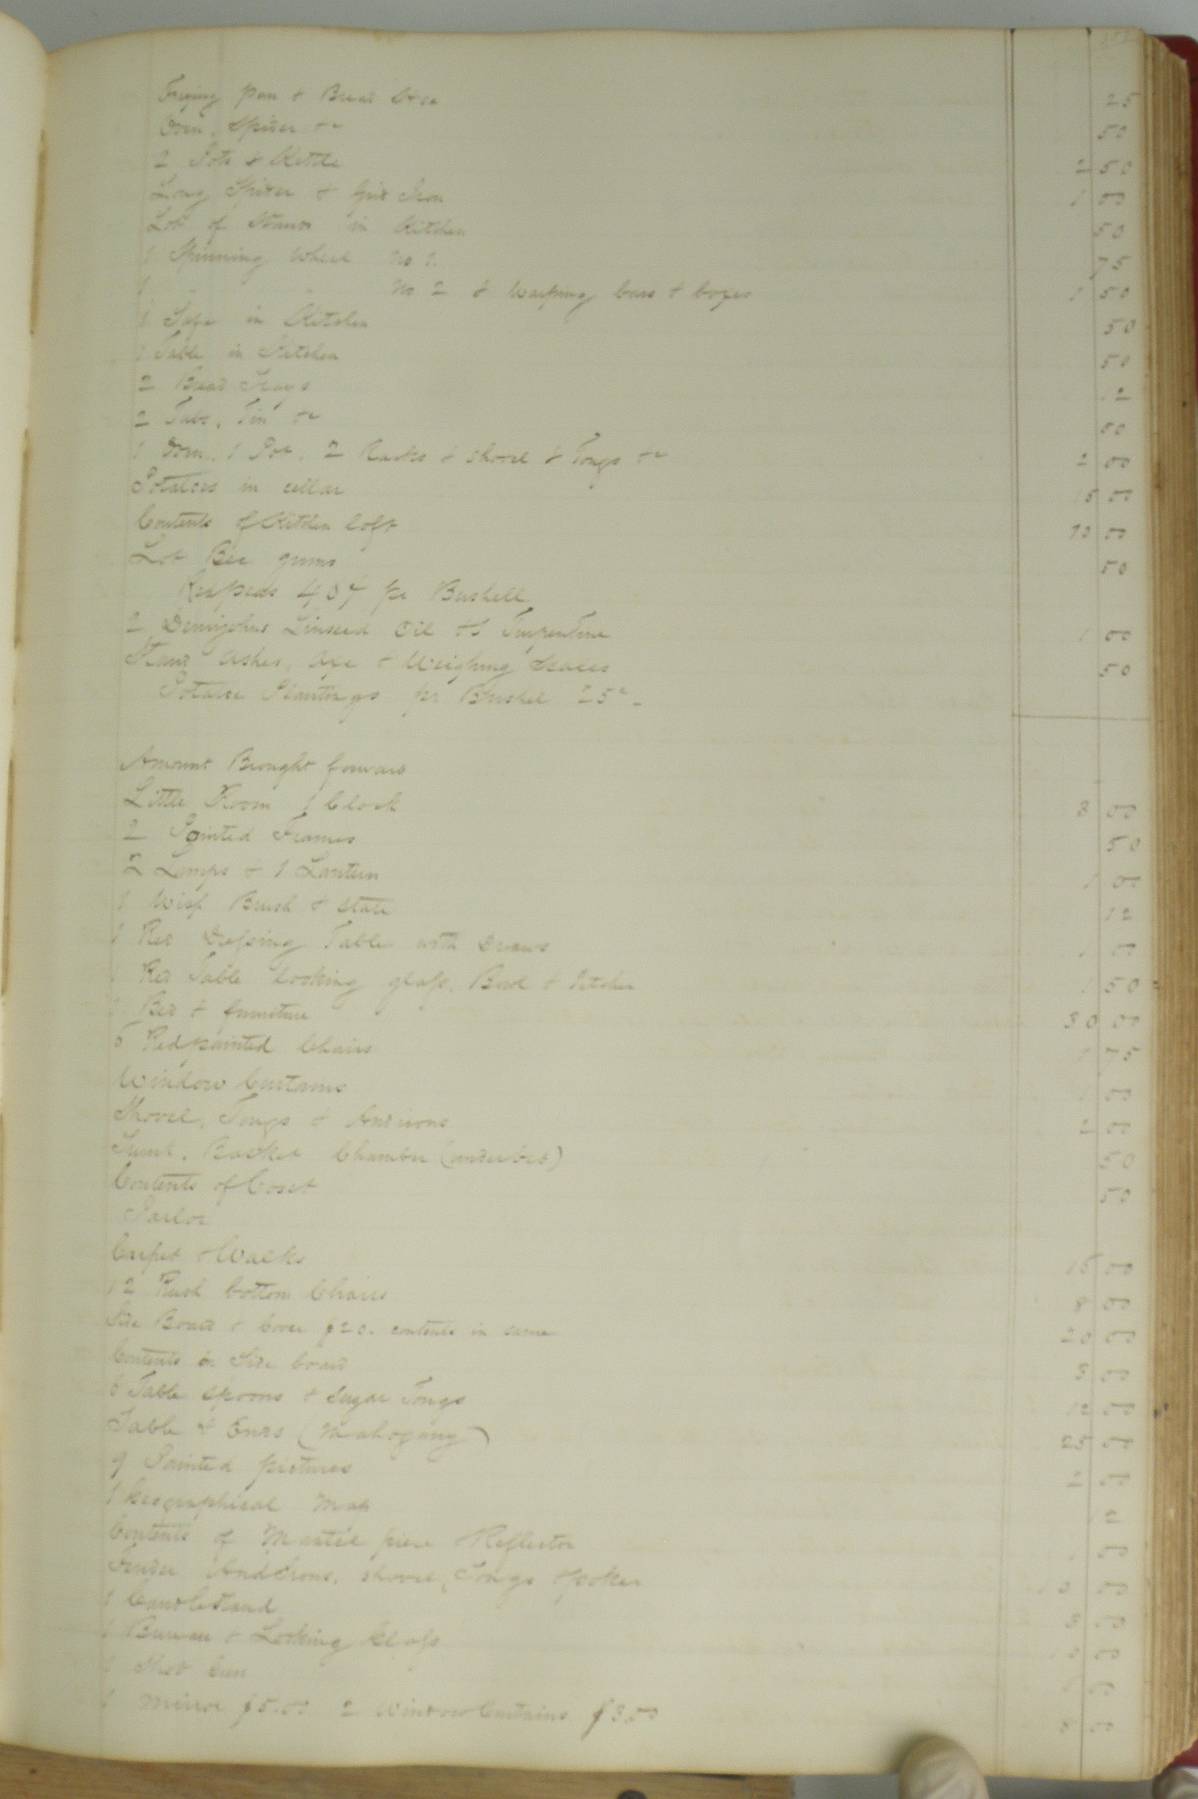 Frying pan & Bread 25
Oven, Spider &c 50
2 Pots & Kettle 2 50
Long Spider & Grid Iron 1 00
Lot of Stands in Kitchen 50
1 Spinning Wheel No 1. 75
1 " " No 2 & Warping bars & boxes 1 50
1 Safe in Kitchen 50
1 Table in Kitchen 50
2 Bread Trays 12
2 Tubs, Tin &c 00
1 Oven, 1 Pot, 2 Racks & shovel & Tongs &c 2 00
Potatoes in cellar 15 00
Contents of Kitchen loft 00
Lot Bee gums 50
Redpeas 40¢ pr Bushell
2 Demijohns Linseed Oil & Turpentine 1 00
Stand Ashes, Axe & Weighing Scales 50
Potatoe Plantings pr Bushel 25c
Amount Brought forward
Little Room 1 Clock 3 00
2 Painted Frames 50
2 Lamps & 1 Lantern 1 00
1 Wisp Brush & slate 12
1 Red Dressing Table with Draws 1 00
1 Red Table looking glass, Bowl & Pitcher 1 50
1 Bed & furniture 30 00
6 Redpainted Chairs 1 75
Window Curtains 1 00
Shovel, Tongs & Andirons 2 00
Trunk, Basket Chamber (under bed) 50
Contents of Closet 50
Parlor
Carpet & Walks 15 00
12 Rush bottom Chairs 8 00
Side Board & Cover $20. contents in same 20 00
Contents on Side board 3 00
6 Table spoons & Sugar Tongs 12 00
Table & Ends (Mahogany) 25 00
9 Painted pictures 2 00
1 Geographical Map 12
Contents of Mantle piece & Reflector 1 00
Fender Andirons, shovel, Tongs & poker 00
1 Candlestand 3 00
1 Bureau & Looking Glass 00
1 Shot Gun 00
1 Mirror $5.00 2 Window Curtains $3.00 8 00